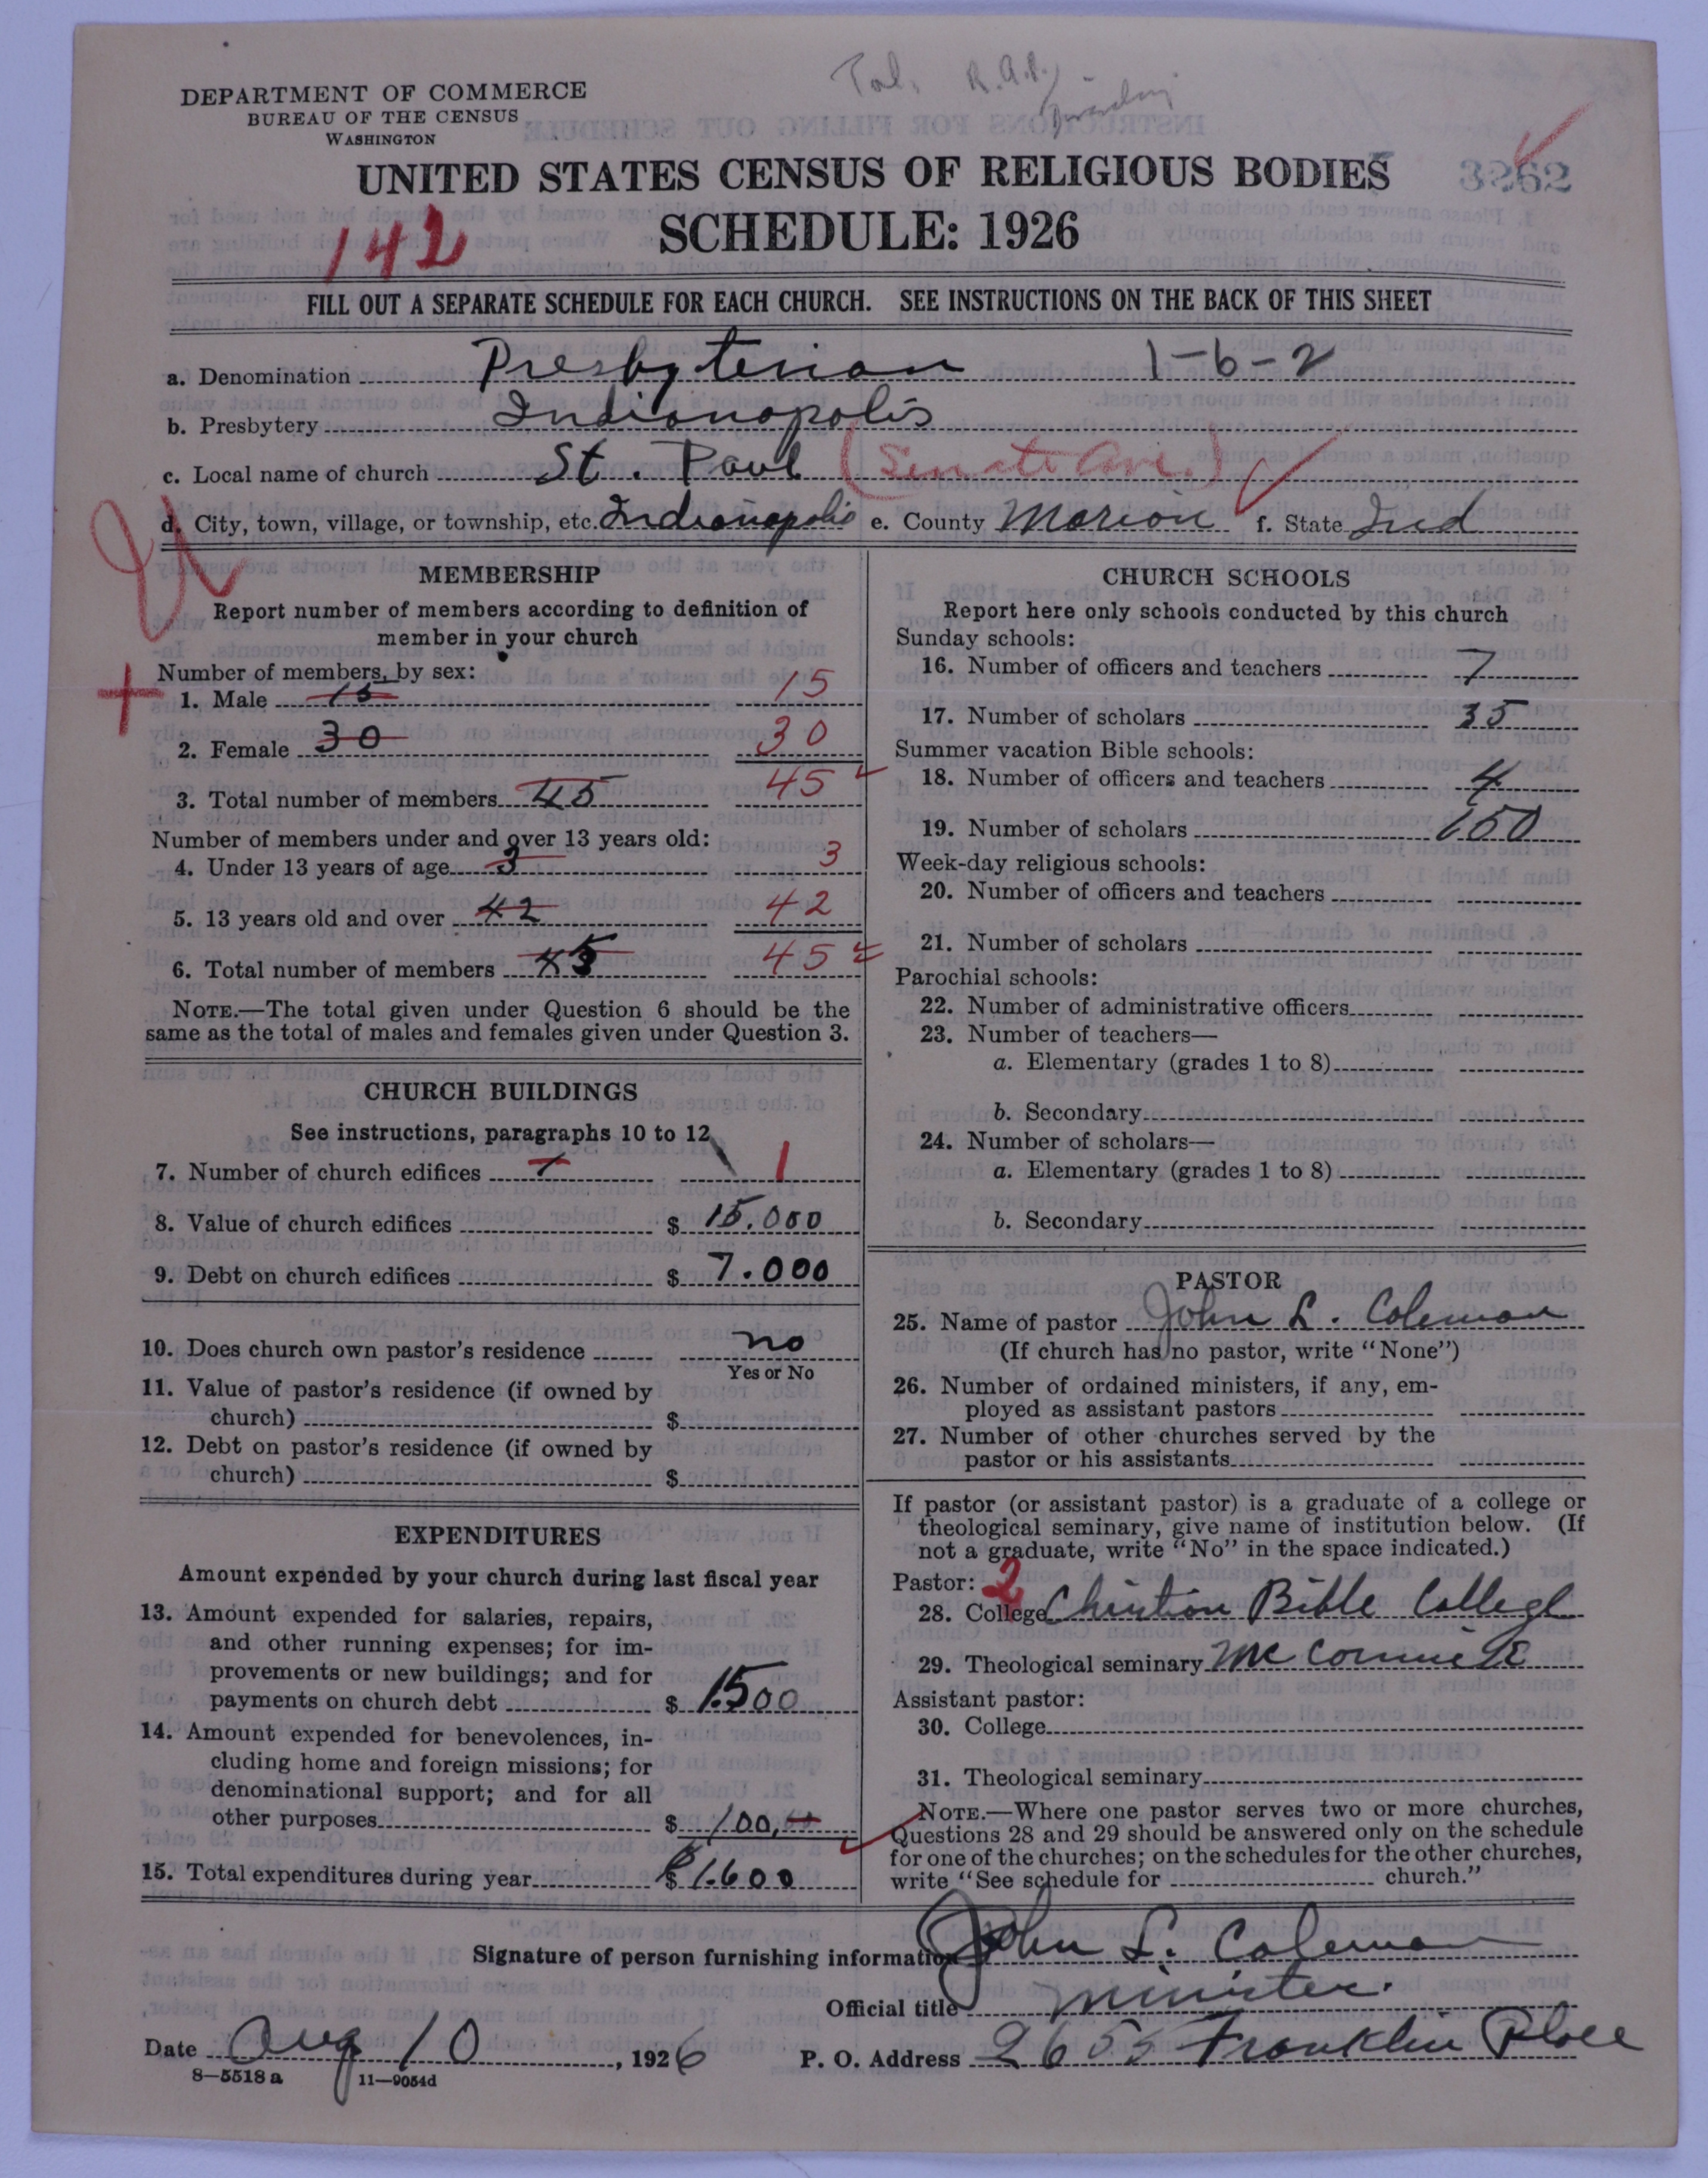 Tal. R.A.P.
DEPARTMENT OF COMMERCE
BUREAU OF THE CENSUS
WASHINGTON
UNITED STATES CENSUS OF RELIGIOUS BODIES
3262
SCHEDULE: 1926
142
FILL OUT A SEPARATE SCHEDULE FOR EACH CHURCH. SEE INSTRUCTIONS ON THE BACK OF THIS SHEET
a. Denomination Presbyterian 1-6-2
b. Presbytery Indianapolis
c. Local name of church St. Paul (Senate Ave.)
d. City, town, village, or township, etc. Indianapolis e. County Marion f. State Ind
MEMBERSHIP
Report number of members according to definition of
member in your church
Number of members, by sex:
1. Male 15 15
2. Female 30 30
3. Total number of members 45 45
Number of members under and over 13 years old:
4. Under 13 years of age 3 3
5. 13 years old and over 42 42
6. Total number of members 45 45
NOTE.—The total given under Question 6 should be the
same as the total of males and females given under Question 3.
CHURCH BUILDINGS
See instructions, paragraphs 10 to 12
7. Number of church edifices 1 1
8. Value of church edifices $ 15.000
9. Debt on church edifices $ 7.000
10. Does church own pastor's residence no
Yes or No
11. Value of pastor's residence (if owned by
church) $
12. Debt on pastor's residence (if owned by
church) $
EXPENDITURES
Amount expended by your church during last fiscal year
13. Amount expended for salaries, repairs,
and other running expenses; for im-
provements or new buildings; and for
payments on church debt $ 1500
14. Amount expended for benevolences, in-
cluding home and foreign missions; for
denominational support; and for all
other purposes $ 100.
15. Total expenditures during year $ 1.600
CHURCH SCHOOLS
Report here only schools conducted by this church
Sunday schools:
16. Number of officers and teachers 7
17. Number of scholars 35
Summer vacation Bible schools:
18. Number of officers and teachers 4
19. Number of scholars 150
Week-day religious schools:
20. Number of officers and teachers
21. Number of scholars
Parochial schools:
22. Number of administrative officers
23. Number of teachers—
a. Elementary (grades 1 to 8)
b. Secondary
24. Number of scholars—
a. Elementary (grades 1 to 8)
b. Secondary
PASTOR
25. Name of pastor John L. Coleman
(If church has no pastor, write "None")
26. Number of ordained ministers, if any, em-
ployed as assistant pastors
27. Number of other churches served by the
pastor or his assistants
If pastor (or assistant pastor) is a graduate of a college or
theological seminary, give name of institution below. (If
not a graduate, write "No" in the space indicated.)
Pastor: 2
28. College Christian Bible College
29. Theological seminary
Assistant pastor:
30. College
31. Theological seminary
NOTE.—Where one pastor serves two or more churches,
Questions 28 and 29 should be answered only on the schedule
for one of the churches; on the schedules for the other churches,
write "See schedule for church."
Signature of person furnishing information John L. Coleman
Official title minister.
Date Aug 10, 1926 P. O. Address 2655 Franklin Place
8—5518a 11—9054d